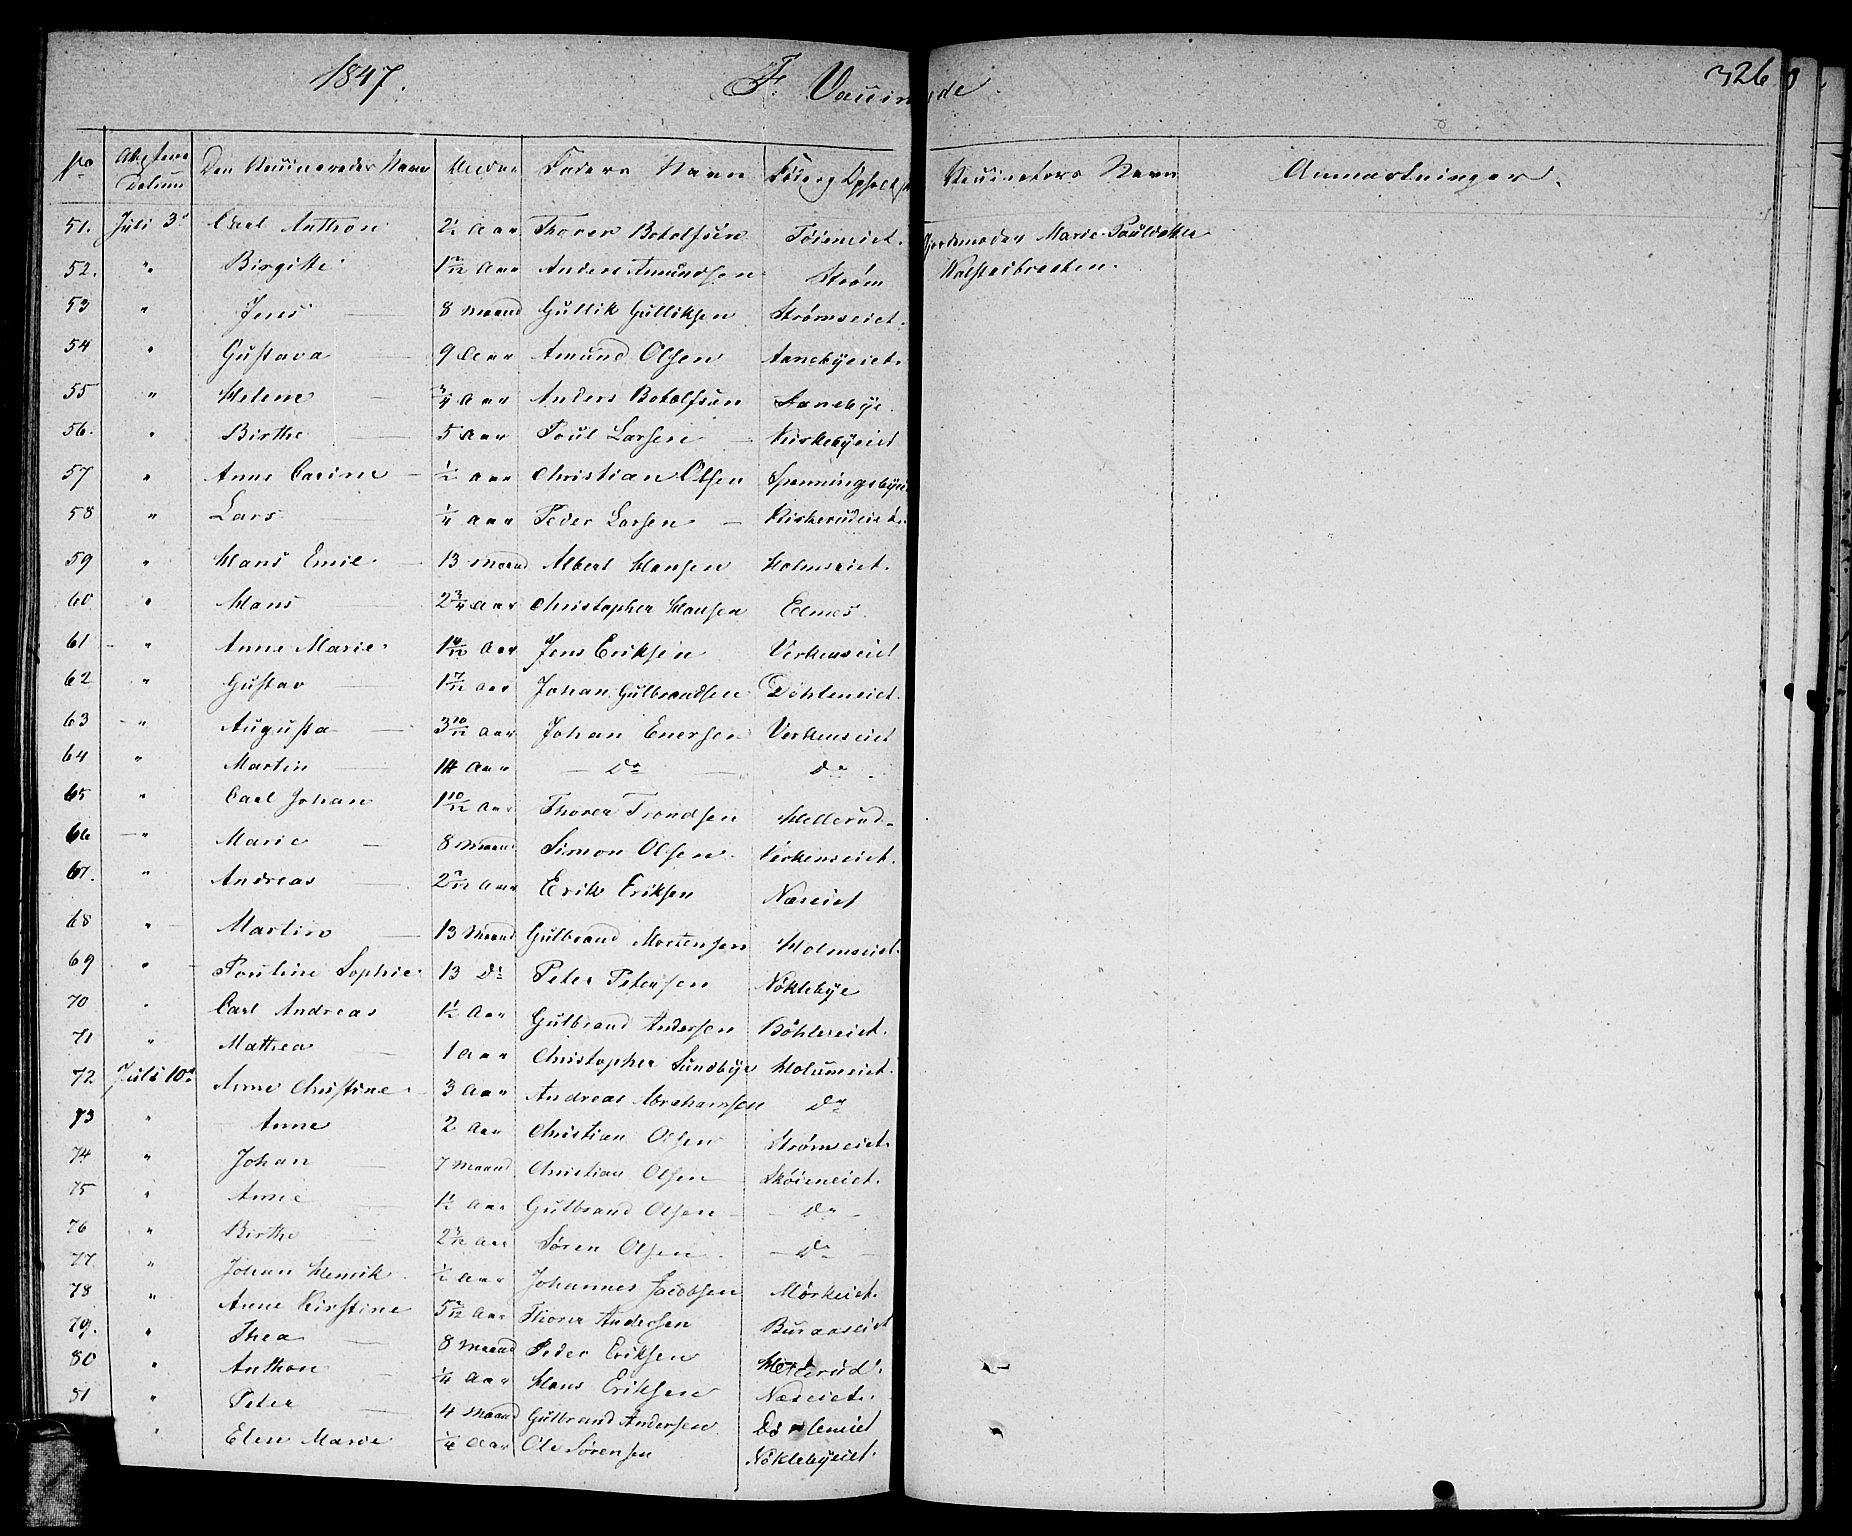 1847. F. Vaccinerede 326
No Attestens Datum Den Vaccineredes Navn Alder Faders Navn Vaccinators Navn Anmærkninger.
51. Juli 3d Carl Anthon 2½ Aar Thorer Botolfsen Töieneiet. Jordemoder Marie Poulsdatter
52. " Birgitte Aar Anders Amundsen Strøm Kolstadbraaten.
53 " Jens 8 Maaned Gullik Gulliksen Strømseiet.
54 " Gustava 9 Aar Amund Olsen Aanebyeiet.
55 " Helene ¾ Aar Anders Botolfsen Aanebye.
56. " Birthe 5 Aar Poul Larsen Kirkebyeiet
57 " Anne Carine ½ Aar Christian Olsen
58 " Lars ¼ Aar Peder Larsen
59 " Hans Emil 13 Maaned Albert Hansen Holmseiet.
60 " Hans 2¾ Aar Christopher Hansen Elnes.
61 " Anne Marie Aar Jens Eriksen Verkenseiet
62 " Gustav 1 7/12 Aar Johan Gulbrandsen Döhleneiet.
63 " Augusta 3 10/12 Aar Johan Enersen Verkenseiet
64 " Martin 14 Aar Do Do
65 " Carl Johan 1 10/12 Aar Thorer Trondsen Hellerud
66 " Marie 8 Maaned Simon Olsen Verkenseiet.
67. " Andreas Aar Erik Eriksen Næseiet
68 " Martin 13 Maaned Gulbrand Mortensen Holmseiet.
69 " Pouline Sophie 13 Do Peter Petersen Nöklebye
70 " Carl Andreas 1½ Aar Gulbrand Andersen Böhlereiet.
71 " Mathea 1 Aar Christopher Sundbye Holumeiet.
72 Juli 10de Anne Christine 3 Aar Andreas Abrahamsen Do
73 " Anne 2 Aar Christian Olsen Strømseiet.
74 " Johan 7 Maaned Christian Olsen Sköieneiet.
75 " Anne 1½ Aar Gulbrand Olsen Do
76 " Birthe 2 3/12 Aar Søren Olsen Do
77. " Johan Henrik ½ Aar Johannes Jacobsen Mørkeiet.
78 " Anne Kirstine Aar Thorer Andersen Buraaseiet
79. " Thea 8 Maaned Peder Eriksen Hellerud
80 " Anthon ¼ Aar Hans Eriksen Næseiet.
81 " Peter 4 Maaned Gulbrand Andersen
" Elen Marie ¼ Aar Ole Sörensen Nöklebyeiet.